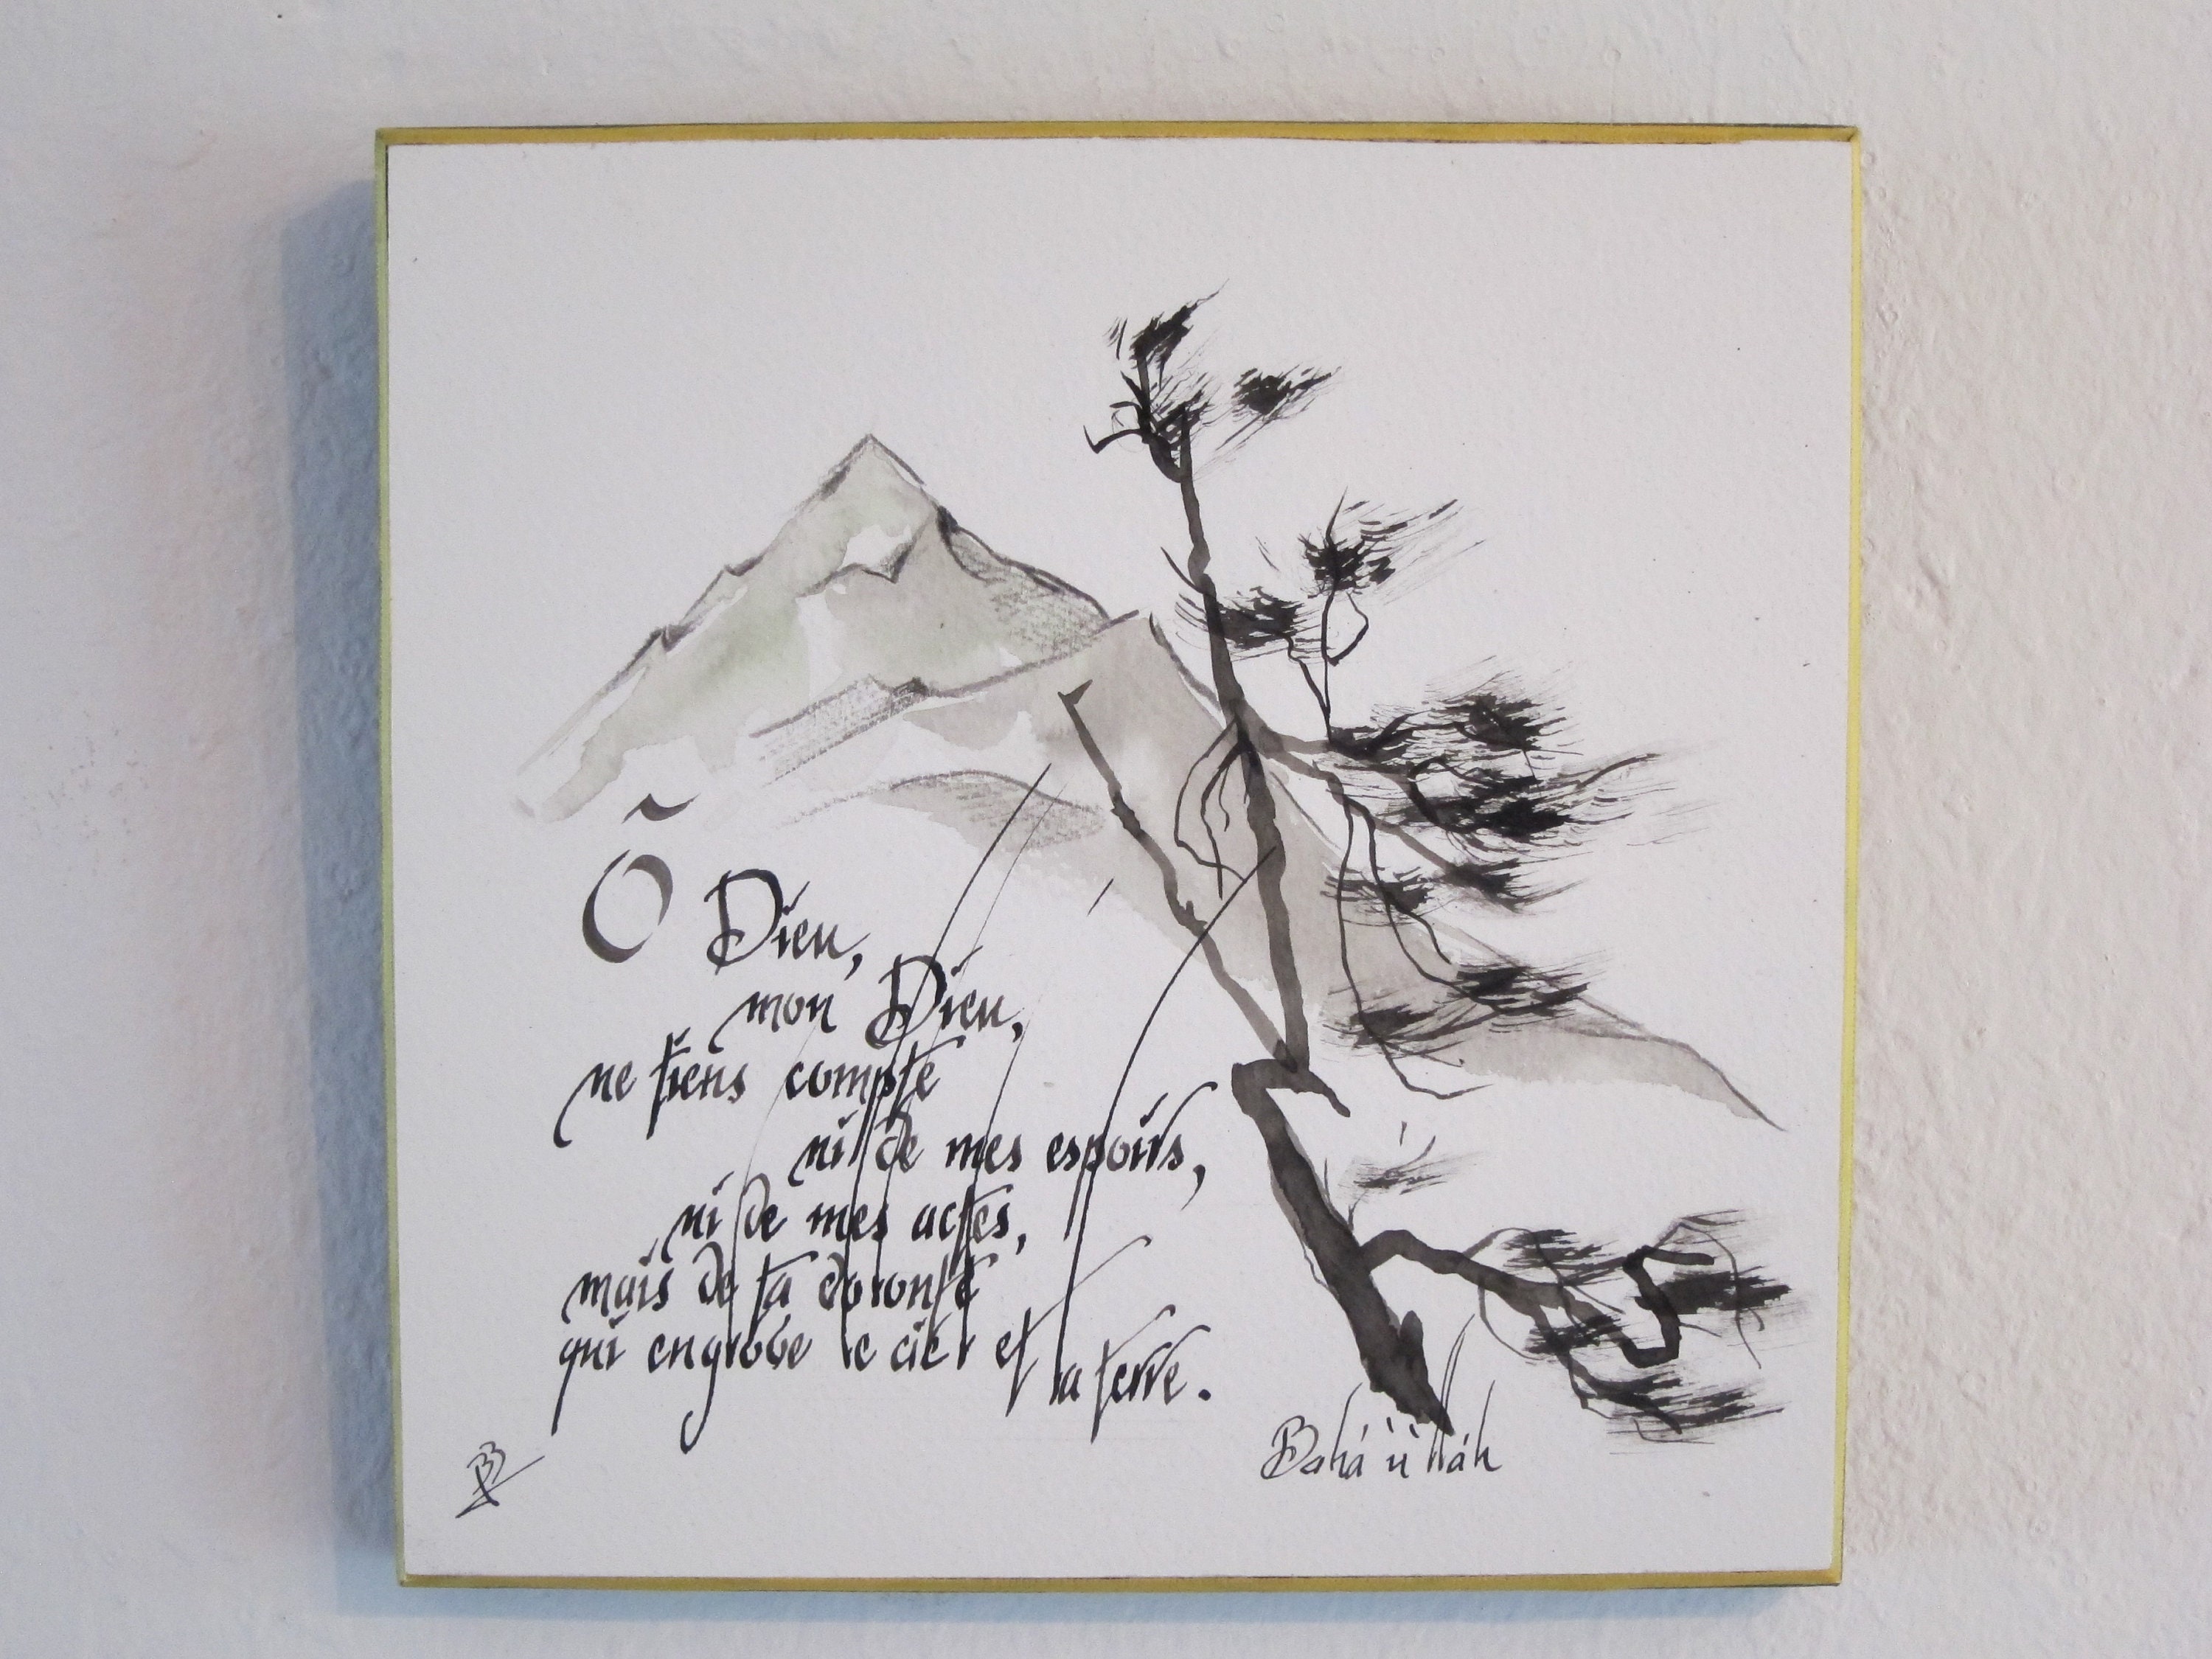 Õ Dieu,
mon Dieu,
ne tiens compte
ni de mes espoirs,
ni de mes actes,
mais de ta volonté
qui englobe le ciel et la terre.
Bahá'u'lláh